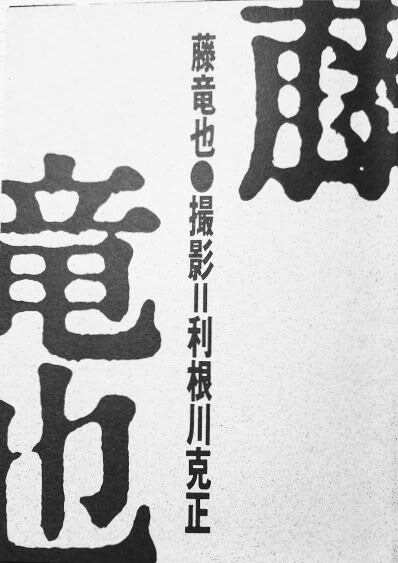 藤
竜也
藤竜也●撮影=利根川克正